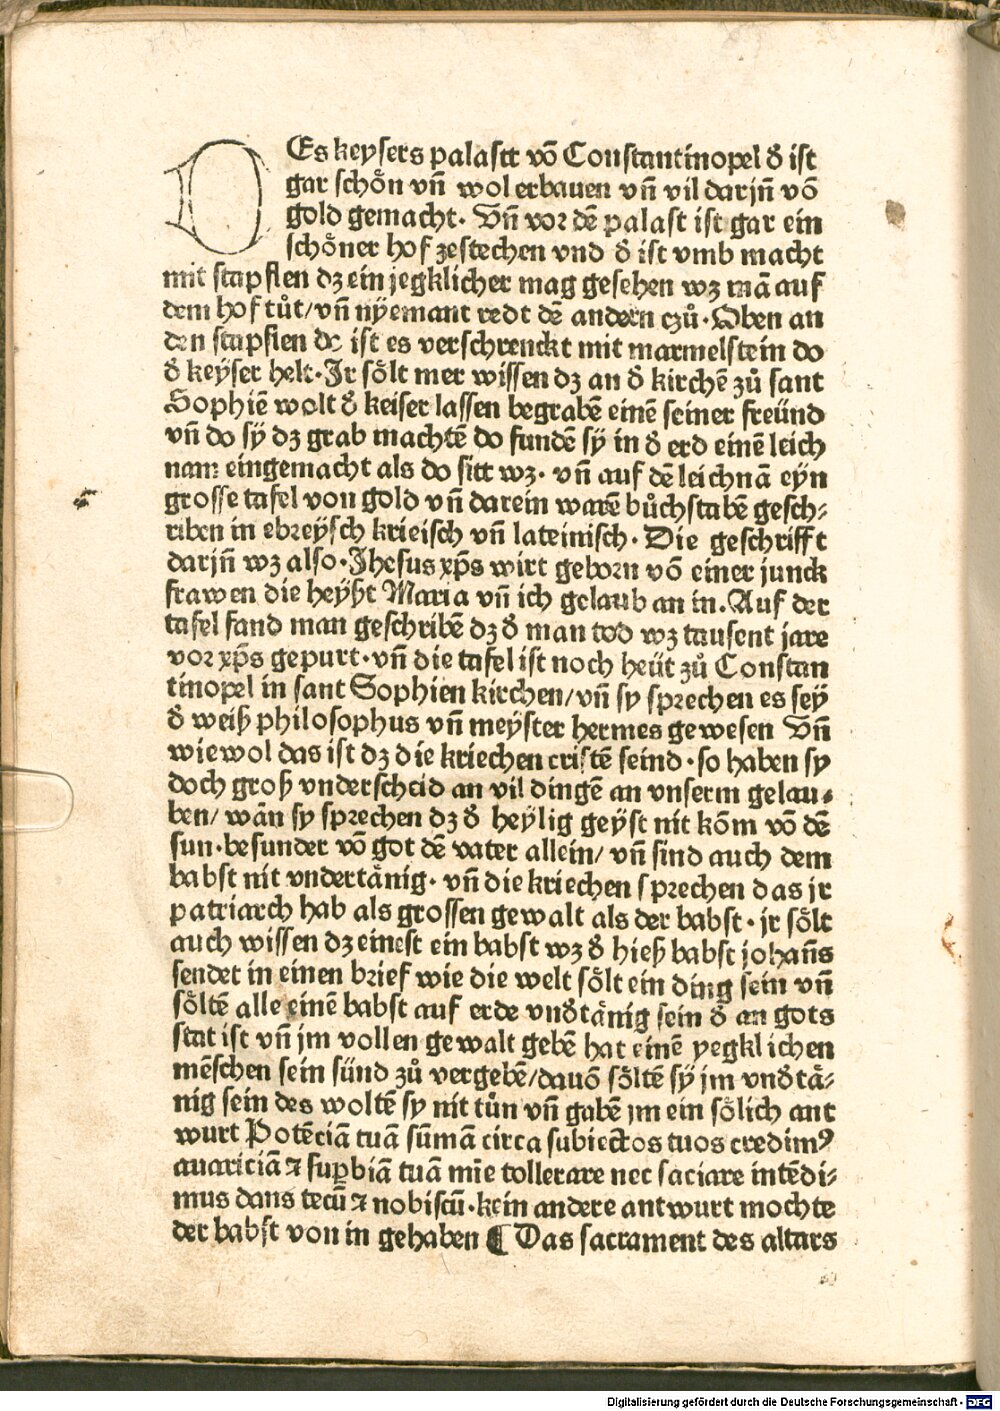 DEs keysers palastt vō Constantinopel d̕ ist
gar schoͤn vn̄ wol erbauen vn̄ vil darjn̄ vō
gold gemacht. Vn̄ vor dē palast ist gar ein
schoͤner hof zestechen vnd d̕ ist vmb macht
mit stapflen dz ein jegklicher mag gesehen wz mā auf
dem hof tuͦt/ vn̄ nÿemant redt dē andern czuͦ. Oben an
den stapflen do ist es verschrenckt mit marmelstein do
d̕ keyser helt. Ir soͤlt mer wissen dz an d̕ kirchē zuͦ sant
Sophiē wolt d̕ keiser lassen begrabē einē seiner freünd
vn̄ do sÿ dz grab machtē do fundē sÿ in d̕ erd einē leich
nam eingemacht als do sitt wz. vn̄ auf dē leichnā eyn
grosse tafel von gold vn̄ darein warē buͦchstabē gesch⸗
riben in ebreÿsch krieisch vn̄ lateinisch. Die geschrifft
darjn̄ wz also. Jhesus xp̄s wirt geborn vō einer junck
frawen die heÿßt Maria vn̄ ich gelaub an in. Auf der
tafel fand man geschribē dz d̕ man tod wz tausent jare
vor xp̄s gepurt. vn̄ die tafel ist noch heüt zuͦ Constan
tinopel in sant Sophien kirchen/ vn̄ sy sprechen es seÿ
d̕ weiß philosophus vn̄ meÿster hermes gewesen Vn̄
wiewol das ist dz die kriechen cristē seind. so haben sy
doch groß vnderscheid an vil dingē an vnserm gelau⸗
ben/ wān sy sprechen dz d̕ heÿlig geÿst nit kōm vō dē
sun. besunder vō got dē vater allein/ vn̄ sind auch dem
babst nit vndertaͤnig. vn̄ die kriechen sprechen das jr
patriarch hab als grossen gewalt als der babst. jr soͤlt
auch wissen dz einest ein babst wz d̕ hieß babst johan̄s
sendet in einen brief wie die welt soͤlt ein ding sein vn̄
soͤltē alle einē babst auf erde vnd̕taͤnig sein d̕ an gots
stat ist vn̄ jm vollen gewalt gebē hat einē yegklichen
mēschen sein sünd zuͦ vergebē/ dauō soͤltē sÿ jm vnd̕taͤ⸗
nig sein des woltē sy nit tuͦn vn̄ gabē jm ein soͤlich ant
wurt Potēciā tuā sūmā circa subiectos tuos credimꝰ
auariciā ⁊ suꝑbiā tuā mīe tollerare nec saciare intēdi⸗
mus dans tecū ⁊ nobiscū. kein andere antwurt mochte
der babst von in gehaben ¶ Das sacrament des altars
Digitalisierung gefördert durch die Deutsche Forschungsgemeinschaft - DFG